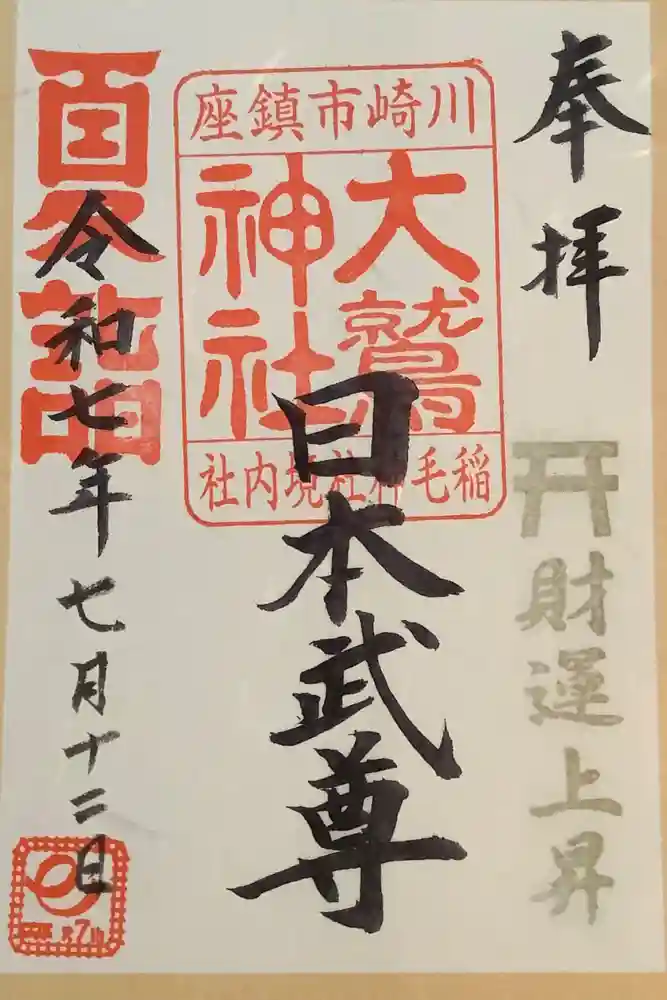 奉拝
財運上昇
川崎市鎮座
大鷲
神社
稲毛神社境内社
日本武尊
令和七年七月十二日